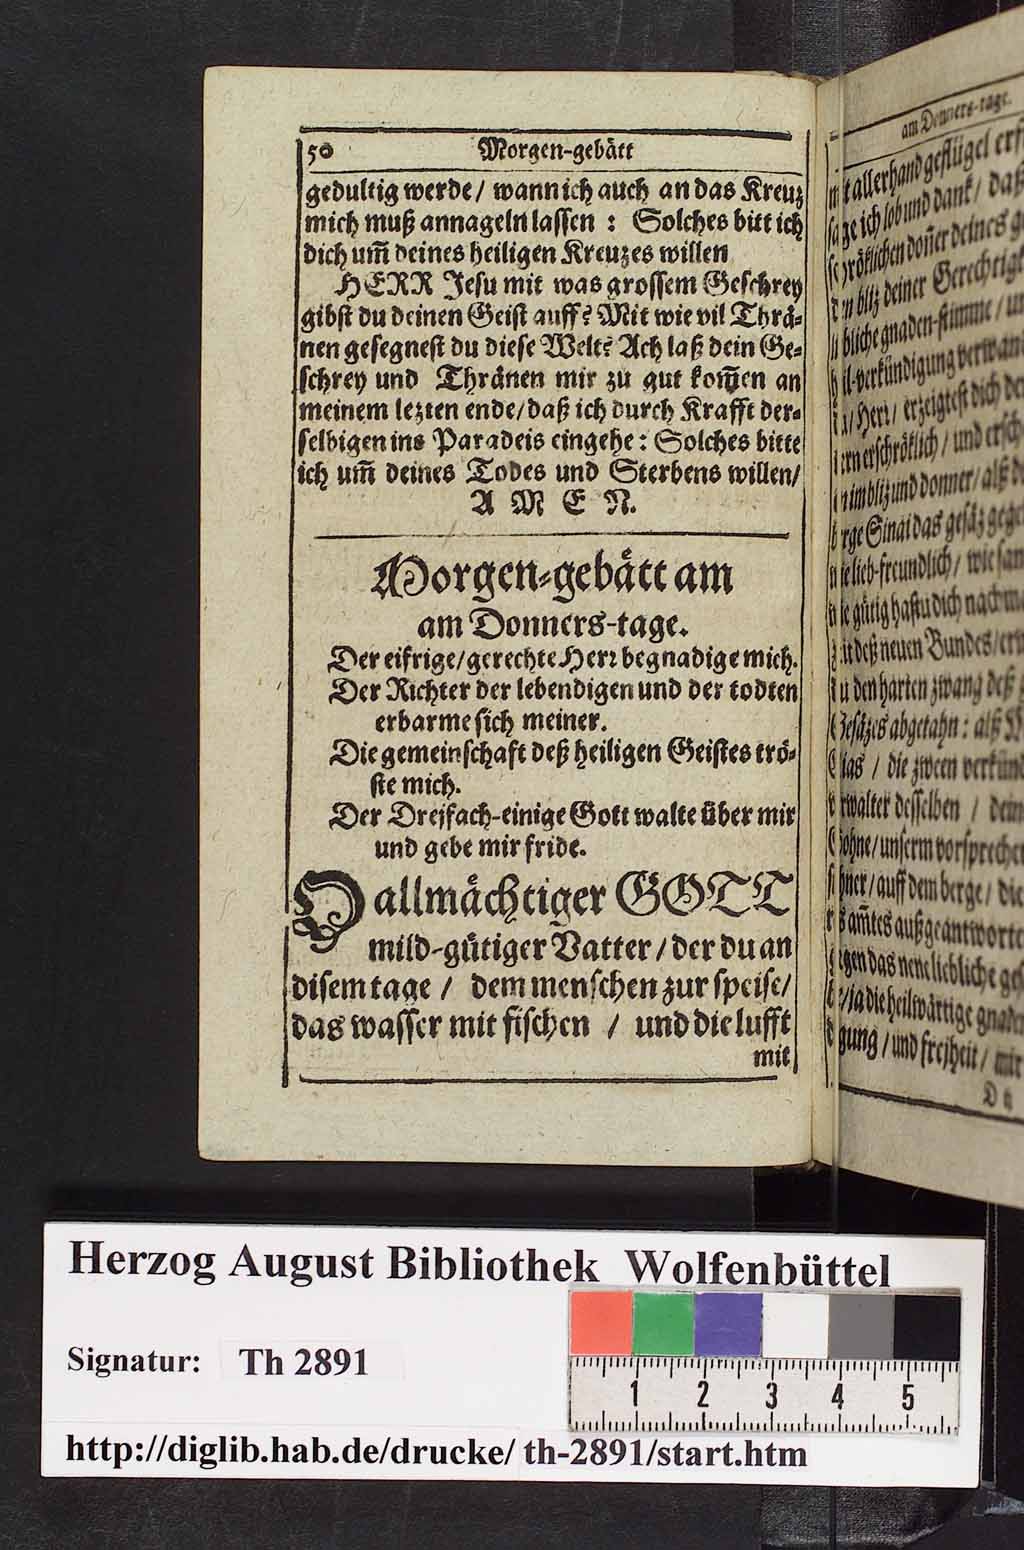 50 Morgen-gebätt
gedultig werde / wann ich auch an das Kreuz
mich muß annageln lassen : Solches bitt ich
dich um̃ deines heiligen Kreuzes willen
HERR Jesu mit was grossem Geschrey
gibst du deinen Geist auff? Mit wie vil Thrä-
nen gesegnest du diese Welt? Ach laß dein Ge-
schrey und Thränen mir zu gut kom̃en an
meinem lezten ende / daß ich durch Krafft der-
selbigen ins Paradeis eingehe : Solches bitte
ich um̃ deines Todes und Sterbens willen /
A M E N.
Morgen-gebätt am
am Donners-tage.
Der eifrige / gerechte Herr begnadige mich.
Der Richter der lebendigen und der todten
erbarme sich meiner.
Die gemeinschaft deß heiligen Geistes trö-
ste mich.
Der Dreifach-einige Gott walte über mir
und gebe mir fride.
O allmächtiger GOTT
mild-gütiger Vatter / der du an
disem tage / dem menschen zur speise /
das wasser mit fischen / und die lufft
mit
am Donners-tage.
allerhand geflügel
ge ich lob und dank / daß
don̄er deines
bliz deiner Gerechtigk
gnaden-stimme /
verkündigung
/ Herr / erzeigtest dich
erschröklich / und
im bliz und donner / alß
Sinai das gesäz
lieb-freundlich / wie
gütig hastu dich
deß neuen Bundes /
den harten zwang deß
Gesäzes abgetahn : alß
/ die zween
walter desselben / dein
ohne / unserm vorsprecher
/ auff dem berge / die
am̃tes außgeantwortet
das neue liebliche
/ ja die heilwärtige
gung / und freiheit / mir
D ij
Herzog August Bibliothek Wolfenbüttel
Signatur: Th 2891
1 2 3 4 5
http://diglib.hab.de/drucke/ th-2891/start.htm